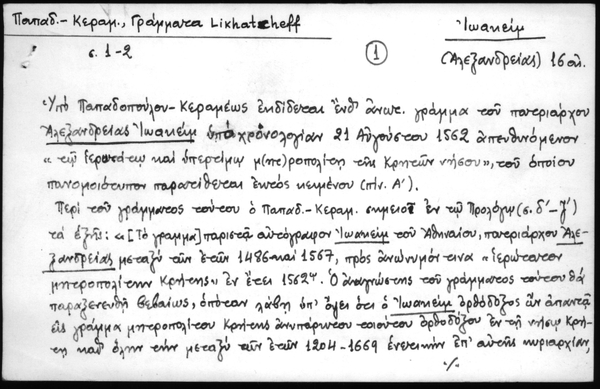 Παπαδ.- Κεραμ., Γράμματα Likhatcheff
Ἰωακεὶμ
σ. 1-2
1
(Ἀλεξανδρείας) 16 αἰ.
Ὑπὸ Παπαδοπούλου-Κεραμέως ἐκδίδεται ἔνθ' ἀνωτ. γράμμα τοῦ πατριάρχου
Ἀλεξανδρείας Ἰωακεὶμ ὑπὸ χρονολογίαν 21 Αὐγούστου 1562 ἀπευθυνόμενον
«τῷ ἱερωτάτῳ καὶ ὑπερτίμῳ μ(ητ)ροπολίτῃ τῆς Κρητῶν νήσου», τοῦ ὁποίου
πανομοιότυπον παρατίθεται ἐντὸς κειμένου (πίν. Α').
Περὶ τοῦ γράμματος τούτου ὁ Παπαδ.-Κεραμ. σημειοῖ ἐν τῷ Προλόγῳ (σ. δ'-ζ')
τὰ ἑξῆς: «[Τὸ γράμμα] παριστᾷ αὐτόγραφον Ἰωακεὶμ τοῦ Ἀθηναίου, πατριάρχου Ἀλε-
ξανδρείας μεταξὺ τῶν ἐτῶν 1486 καὶ 1567, πρὸς ἀνώνυμόν τινα «ἱερώτατον
μητροπολίτην Κρήτης» ἐν ἔτει 1562ῳ. Ὁ ἀναγνώστης τοῦ γράμματος τούτου θὰ
παραξενευθῇ βεβαίως, ὁπόταν λάβῃ ὑπ' ὄψει ὅτι ὁ Ἰωακεὶμ ὀρθόδοξος ὢν ἀπαντᾷ
εἰς γράμμα μητροπολίτου Κρήτης ἀνυπάρκτου τοιούτου ὀρθοδόξου ἐν τῇ νήσῳ Κρή-
τῃ καθ' ὅλην τὴν μεταξὺ τῶν ἐτῶν 1204-1669 ἑνετικὴν ἐπ' αὐτῆς κυριαρχίαν,
./.